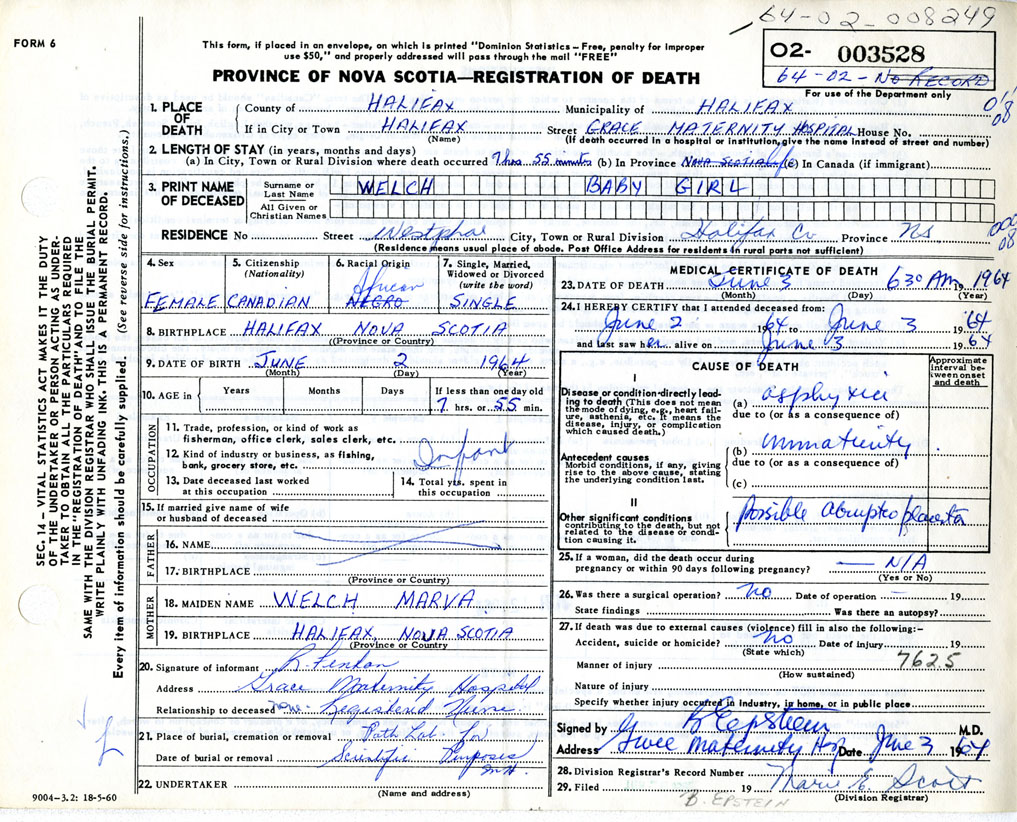 64-02-008249
FORM 6
This form, if placed in an envelope, on which is printed "Dominion Statistics – Free, penalty for improper
use $50," and properly addressed will pass through the mail "FREE"
PROVINCE OF NOVA SCOTIA—REGISTRATION OF DEATH
02- 003528
64-02-NO RECORD
For use of the Department only
SEC. 14 – VITAL STATISTICS ACT MAKES IT THE DUTY
OF THE UNDERTAKER OR PERSON ACTING AS UNDER-
TAKER TO OBTAIN ALL THE PARTICULARS REQUIRED
IN THE "REGISTRATION OF DEATH" AND TO FILE THE
SAME WITH THE DIVISION REGISTRAR WHO SHALL ISSUE THE BURIAL PERMIT.
WRITE PLAINLY WITH UNFADING INK. THIS IS A PERMANENT RECORD.
Every item of information should be carefully supplied. (See reverse side for instructions.)
1. PLACE OF DEATH
County of HALIFAX Municipality of HALIFAX
If in City or Town HALIFAX Street GRACE MATERNITY HOSPITAL House No.
(Name) (If death occurred in a hospital or institution, give the name instead of street and number)
2. LENGTH OF STAY (in years, months and days)
(a) In City, Town or Rural Division where death occurred 7 hrs 55 minutes (b) In Province NOVA SCOTIA life (c) In Canada (if immigrant)
3. PRINT NAME OF DECEASED
Surname or Last Name WELCH BABY GIRL
All Given or Christian Names
RESIDENCE No Street Westphal City, Town or Rural Division Halifax Co Province NS
(Residence means usual place of abode. Post Office Address for residents in rural parts not sufficient)
4. Sex FEMALE
5. Citizenship (Nationality) CANADIAN
6. Racial Origin African NEGRO
7. Single, Married, Widowed or Divorced (write the word) SINGLE
8. BIRTHPLACE HALIFAX NOVA SCOTIA
(Province or Country)
9. DATE OF BIRTH JUNE 2 1964
(Month) (Day) (Year)
10. AGE in Years Months Days If less than one day old
7 hrs. or 55 min.
OCCUPATION
11. Trade, profession, or kind of work as
fisherman, office clerk, sales clerk, etc.
12. Kind of industry or business, as fishing,
bank, grocery store, etc. Infant
13. Date deceased last worked
at this occupation
14. Total yrs. spent in
this occupation
15. If married give name of wife
or husband of deceased
FATHER
16. NAME
17. BIRTHPLACE
(Province or Country)
MOTHER
18. MAIDEN NAME WELCH MARVA
19. BIRTHPLACE HALIFAX, NOVA SCOTIA
(Province or Country
20. Signature of informant
Address Grace Maternity Hospital
Relationship to deceased none - Registered Nurse
21. Place of burial, cremation or removal Path Lab. for
Date of burial or removal Scientific Purposes
22. UNDERTAKER
(Name and address)
9004-3.2: 18-5-60
MEDICAL CERTIFICATE OF DEATH
23. DATE OF DEATH June 3 630 AM 1964
(Month) (Day) (Year)
24. I HEREBY CERTIFY that I attended deceased from:
June 2 1964 to June 3 1964
and last saw her alive on June 3 1964
CAUSE OF DEATH
Approximate interval between onset and death
I
Disease or condition directly leading to death (This does not mean the mode of dying, e.g., heart failure, asthenia, etc. It means the disease, injury, or complication which caused death.)
(a) asphyxia
due to (or as a consequence of)
Antecedent causes
Morbid conditions, if any, giving rise to the above cause, stating the underlying condition last.
(b) immaturity
due to (or as a consequence of)
(c)
II
Other significant conditions contributing to the death, but not related to the disease or condition causing it.
possible abruptio placenta
25. If a woman, did the death occur during
pregnancy or within 90 days following pregnancy? — N/A
(Yes or No)
26. Was there a surgical operation? no Date of operation — 19
State findings Was there an autopsy?
27. If death was due to external causes (violence) fill in also the following:–
Accident, suicide or homicide? No Date of injury 19
(State which)
Manner of injury 762.5
(How sustained)
Nature of injury
Specify whether injury occurred in industry, in home, or in public place
Signed by B Epstein M.D.
Address Grace Maternity Hosp Date June 3 1964
28. Division Registrar's Record Number
29. Filed 19 Marie E. Scott
(Division Registrar)
B. EPSTEIN